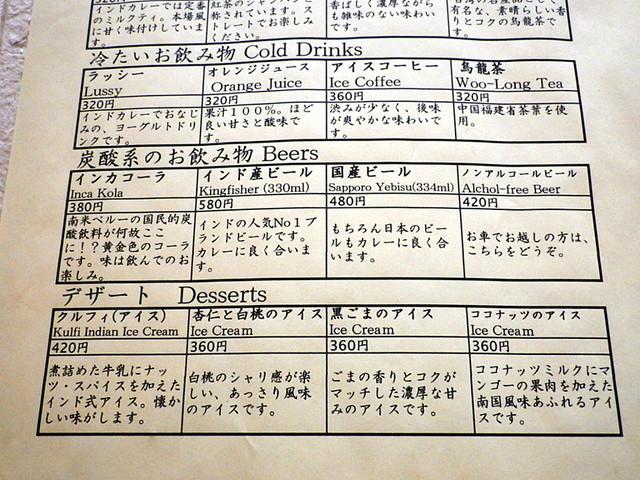 320円
インドカレーでは定番
のミルクティ。本場風
に甘く味付けしていま
す。
称されています。ス
トレートでお楽しみ
ください。
香ばしく濃厚ながら
も雑味のない味わい
です。
有名な、素晴らしい香
りとコクの烏龍茶で
す。
冷たいお飲み物 Cold Drinks
ラッシー
Lussy
320円
インドカレーでおなじ
みの、ヨーグルトドリ
ンクです。
オレンジジュース
Orange Juice
320円
果汁100%。ほど
良い甘さと酸味で
す。
アイスコーヒー
Ice Coffee
360円
渋みが少なく、後味
が爽やかな味わいで
す。
烏龍茶
Woo-Long Tea
320円
中国福建省茶葉を使
用。
炭酸系のお飲み物 Beers
インカコーラ
Inca Kola
380円
南米ペルーの国民的炭
酸飲料が何故ここ
に！？黄金色のコーラ
です。味は飲んでのお
楽しみ。
インド産ビール
Kingfisher (330ml)
580円
インドの人気No１ブ
ランドビールです。
カレーに良く合いま
す。
国産ビール
Sapporo Yebisu(334ml)
480円
もちろん日本のビー
ルもカレーに良く合
います。
ノンアルコールビール
Alchol-free Beer
420円
お車でお越しの方は、
こちらをどうぞ。
デザート Desserts
クルフィ(アイス)
Kulfi Indian Ice Cream
420円
煮詰めた牛乳にナッ
ツ・スパイスを加えた
インド式アイス。懐か
しい味がします。
杏仁と白桃のアイス
Ice Cream
360円
白桃のシャリ感が楽
しい、あっさり風味
のアイスです。
黒ごまのアイス
Ice Cream
360円
ごまの香りとコクが
マッチした濃厚な甘
みのアイスです。
ココナッツのアイス
Ice Cream
360円
ココナッツミルクにマ
ンゴーの果肉を加えた
南国風味あふれるアイ
スです。